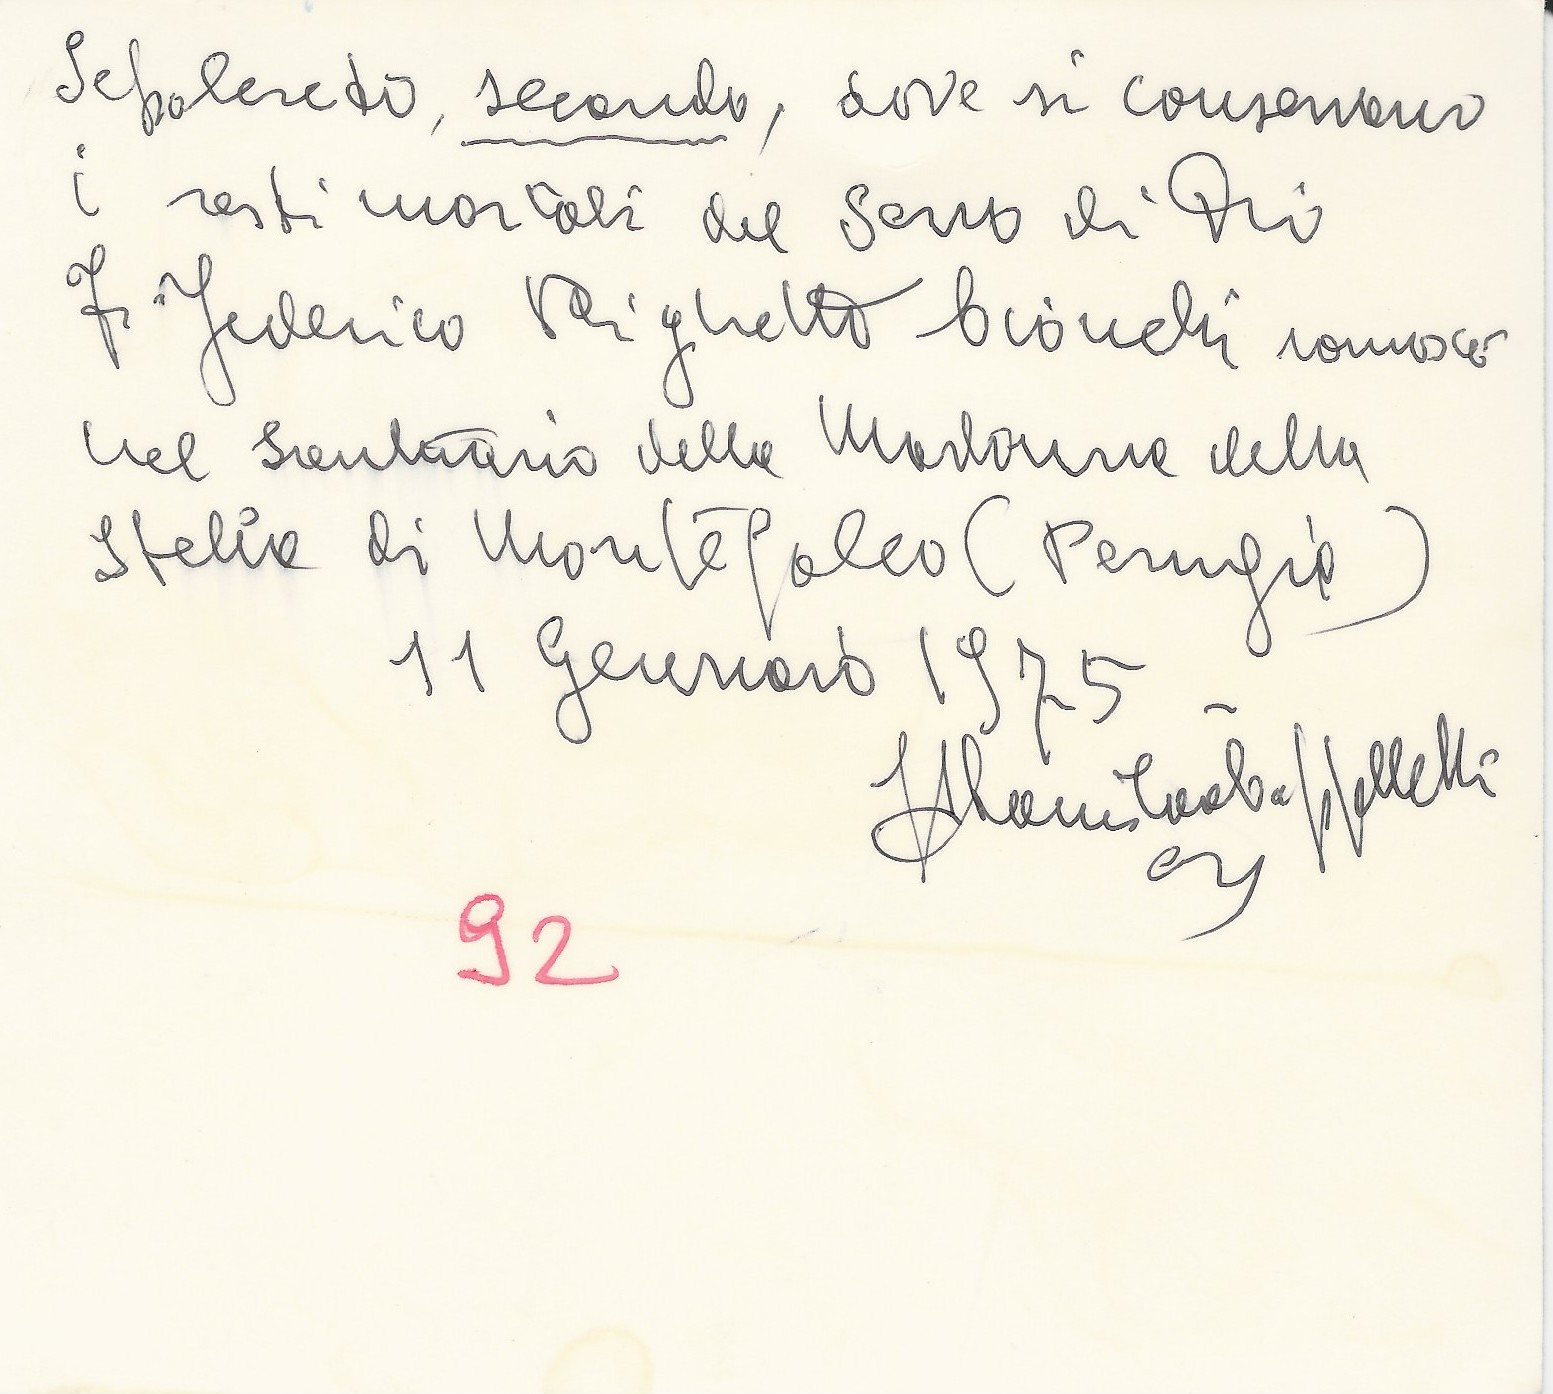 Sepolcreto, secondo, dove si conservano
i resti mortali del Servo di Dio
Fr. Federico Righetto Cionchi somasco
nel santuario della Madonna della
Stella di Montefalco (Perugia)
11 Gennaio 1975
P. Stanislao Cappelletti
92